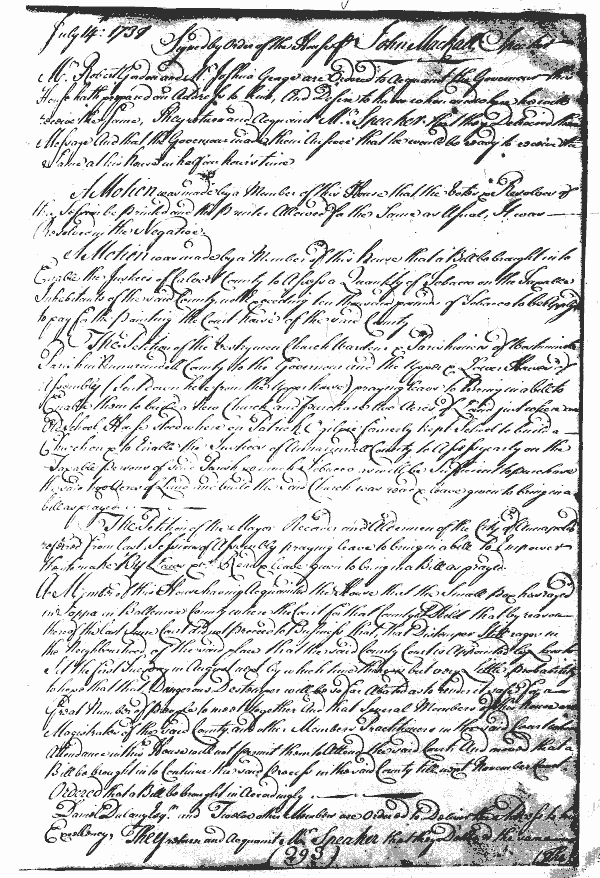 July 14: 1739
Signed by Order of the House John Mackall Speaker
Mr. Robert Gordon and Mr. Joshua George are Ordered to Acquaint the Governour this
House hath prepared an Address to him, And Desire to know when and where he will
receive the same, They return and Acquaint Mr. Speaker that they Delivered their
Message And that the Governour made them Answer that he would be ready to receive the
same at his house in half an hours time
A Motion was made by a Member of this House that the Votes & Resolves of
this Session be Printed and the Printer Allowed for the Same as Usual, It was
Resolved in the Negative.
A Motion was made by a Member of this House that a Bill be brought in to
Enable the Justices of Calvert County to Assess a Quantity of Tobacco on the Taxable
Inhabitants of the said County not Exceeding ten thousand pounds of Tobacco to be Applyed
to pay for the Painting the Court house of the said County
The Petition of the Vestrymen Church Wardens & Parishioners of Westminster
Parish in Annarundell County to the Governour and the Upper & Lower Houses of
Assembly (Sent down here from the Upper house) praying leave to Bring in a bill to
Enable them to build a New Church and Purchase two Acres of Land just where an
Old School House stood where on formerly kept School to build a
Church on & to Enable the Justices of Annarundell County to Assess yearly on the
Taxable persons of said Parish so much Tobacco as will be Sufficient to purchase
the said two Acres of Land and build the said Church was read & leave given to bring in a
bill as prayed
The Petition of the Mayor Recorder and Aldermen of the City of Annapolis
referred from Last Session of Assembly praying leave to bring in a bill to Empower
them to make By Laws &c. Read & leave given to bring in a Bill as prayed
A Member of this House having Acquainted the House that the Small Pox has raged
in Joppa in Baltimore County where the Court for that County is held that by reason
thereof the last June Court did not proceed to Business that, that Distemper still rages in
the Neighbourhood of the said place that the said County Court is Appointed by Law to
Set the first Tuesday in August next by which time there is but very little probability
to hope that that Dangerous Distemper will be so far Abated as to render it safe for any
Great Number of People to meet together And that Several Members of this house are
Magistrates of the said County and other Members Practitioners in the said Court whose
Attendance in this House will not permit them to Attend the said Court And moved that a
Bill be brought in to Continue the said Process in the said County till next November Court
Ordered that a Bill be brought in Accordingly
Daniel Dulany Esqr. and Twelve other Members are Ordered to Deliver the Address to his
Excellency They return and Acquaint Mr. Speaker that they Delivered the same
(293) The